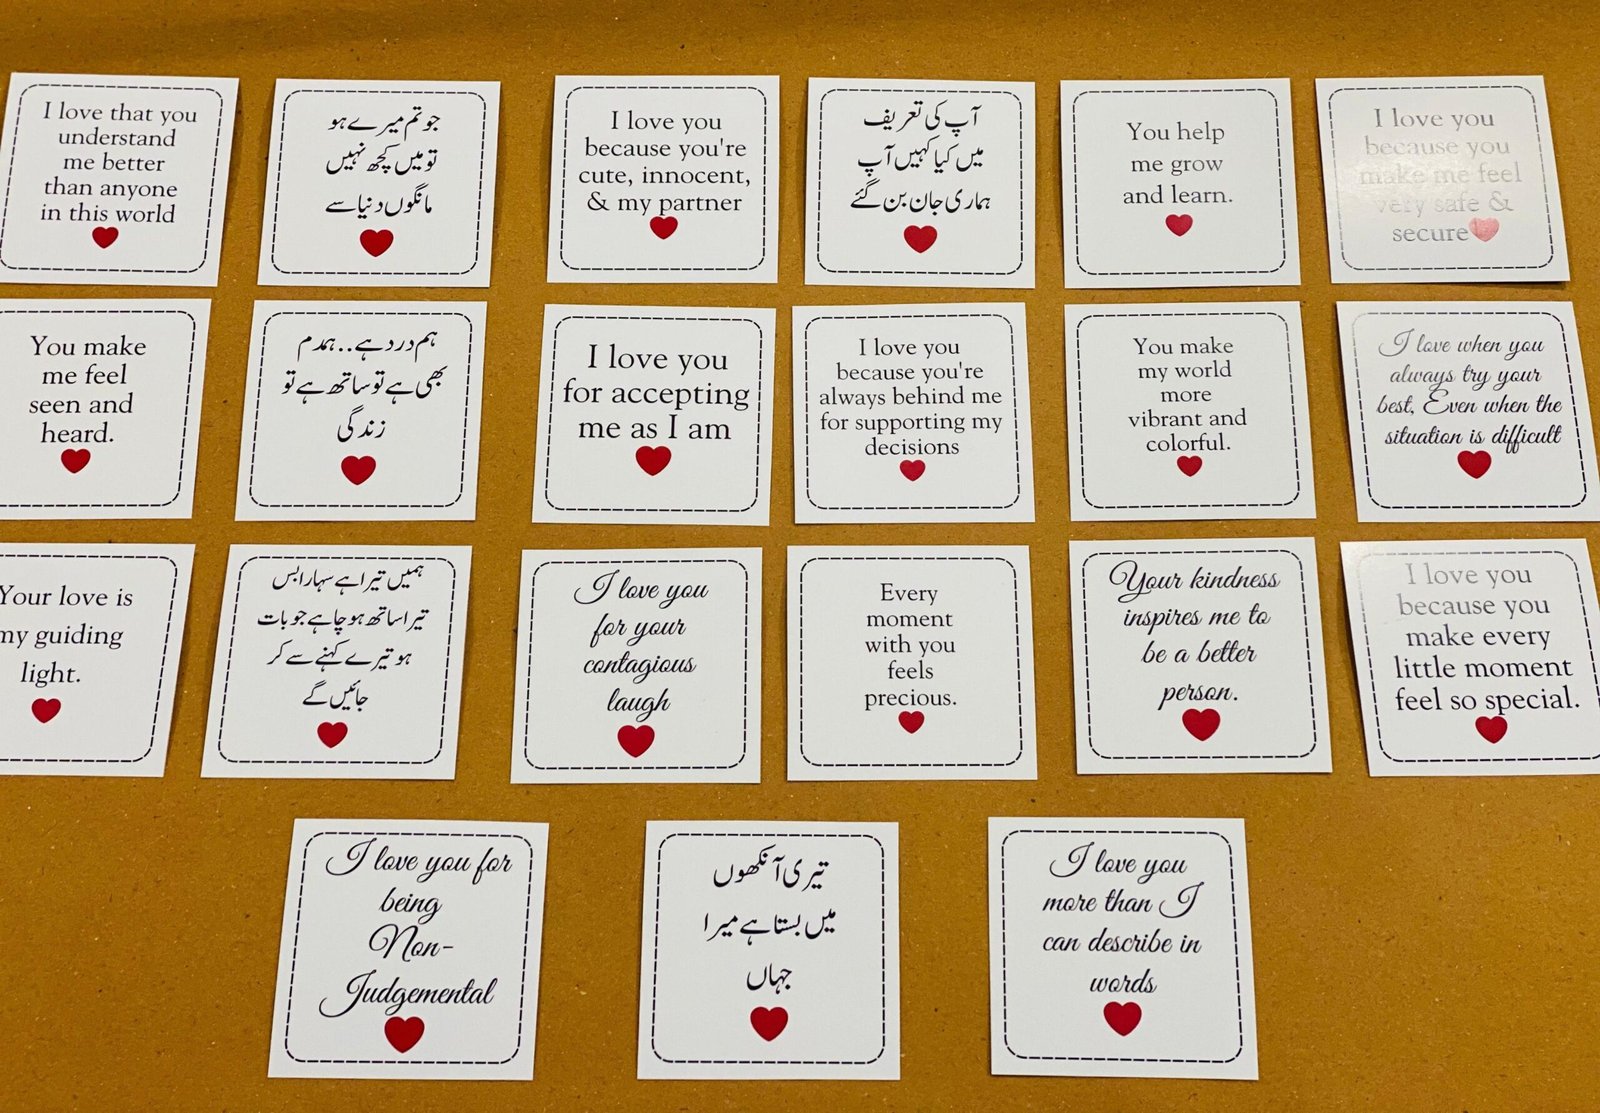 I love that you
understand
me better
than anyone
in this world
جو تم میرے ہو
تو میں کچھ نہیں
مانگوں دنیا سے
I love you
because you're
cute, innocent,
& my partner
آپ کی تعریف
میں کیا کہیں آپ
ہماری جان بن گئے
You help
me grow
and learn.
I love you
because you
make me feel
very safe &
secure
You make
me feel
seen and
heard.
ہم درد ہے..ہمدم
بھی ہے تو ساتھ ہے تو
زندگی
I love you
for accepting
me as I am
I love you
because you're
always behind me
for supporting my
decisions
You make
my world
more
vibrant and
colorful.
I love when you
always try your
best, Even when the
situation is difficult
Your love is
my guiding
light.
ہمیں تیرا ہے سہارا بس
تیرا ساتھ ہو چاہے جو بات
ہو تیرے کہنے سے کر
جائیں گے
I love you
for your
contagious
laugh
Every
moment
with you
feels
precious.
Your kindness
inspires me to
be a better
person.
I love you
because you
make every
little moment
feel so special.
I love you for
being
Non-
Judgemental
تیری آنکھوں
میں بستا ہے میرا
جہاں
I love you
more than I
can describe in
words